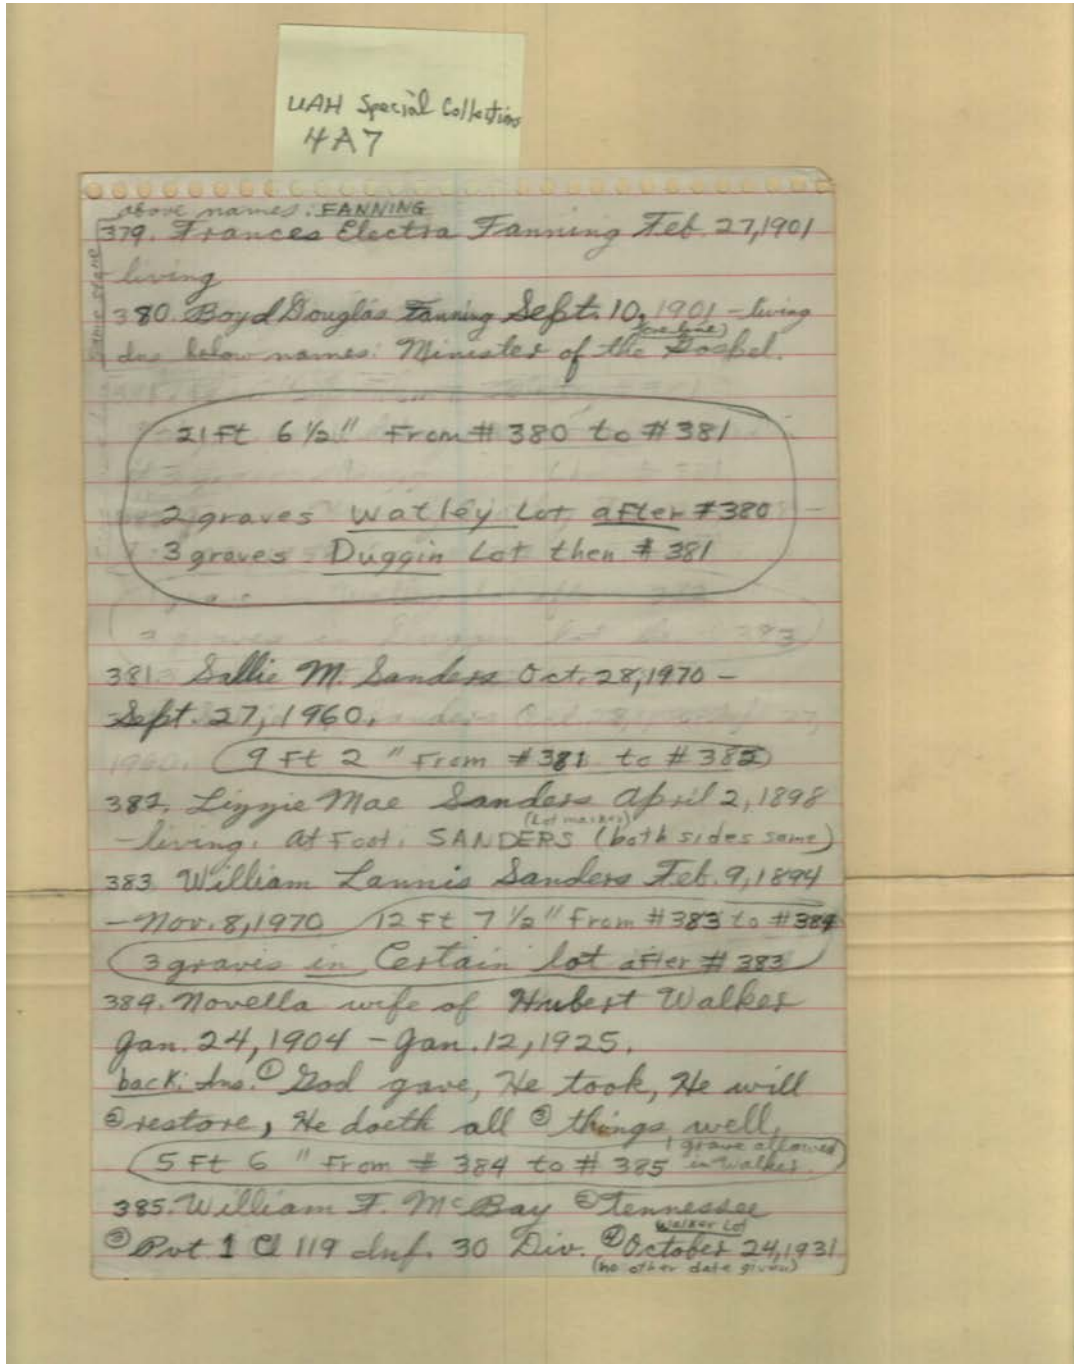 UAH Special Collections
4A7
above names: FANNING
same stone
379. Frances Electra Fanning Feb. 27, 1901
living
380. Boyd Douglas Fanning Sept. 10, 1901 - living
(one line)
Ins below names: Minister of the Gospel.
21 Ft 6 1/2" From # 380 to # 381
2 graves Watley Lot after # 380
3 graves Duggin Lot then # 381
381. Sallie M. Sanders Oct. 28, 1970 -
Sept. 27, 1960.
9 Ft 2 " From # 381 to # 382
382. Lizzie Mae Sanders April 2, 1898
(Lot marker)
- living. At Foot. SANDERS (both sides same)
383. William Lannis Sanders Feb. 9, 1894
- Nov. 8, 1970 12 Ft 7 1/2" From # 383 to # 384
3 graves in Certain lot after # 383
384. Novella wife of Hubert Walker
Jan. 24, 1904 - Jan. 12, 1925.
back: Ins. ① God gave, He took, He will
② restore, He doeth all ③ things well.
1 grave allowed
5 Ft 6 " From # 384 to # 385 in Walker
385. William F. McBay ② Tennessee
Walker Lot
③ Pvt 1 Cl 119 Inf. 30 Div. ④ October 24, 1931
(no other date given)